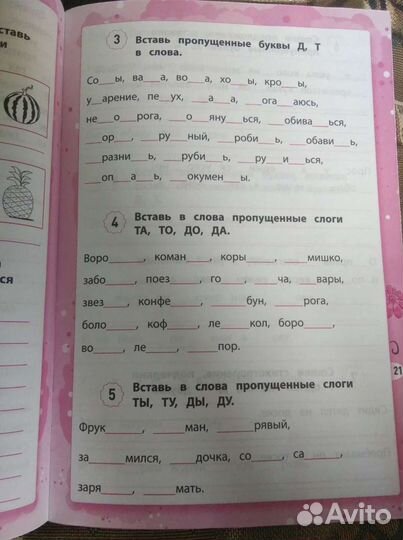 ставь
и
3 Вставь пропущенные буквы Д, Т
в слова.
Со__ы, ва__а, во__а, хо__ы, кро__ы,
у__арение, пе__ух, __а__а, __ога__аюсь,
не__о__рога, __о__яну__ься, __обива__ься,
__ор__, __ру__ный, __роби__ь, __обави__ь,
__разни__ь, __руби__ь, __ру__и__ься,
__оп__а__ь, __окумен__ы.
4 Вставь в слова пропущенные слоги
ТА, ТО, ДО, ДА.
Воро____, коман____, коры____, ____мишко,
забо____, поез____, го____, ____ча, ____вары,
звез____, конфе____, ____бун, ____рога,
боло____, коф____, ле____кол, боро____,
во____, ле____, ____пор.
ся
5 Вставь в слова пропущенные слоги
ТЫ, ТУ, ДЫ, ДУ.
Фрук____, ____ман, ____рявый,
за____мился, ____дочка, со____, са____,
заря____, ____мать.
21
Avito